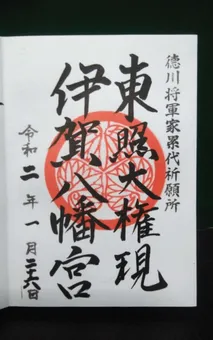 徳川将軍家累代祈願所
東照大権現
伊賀八幡宮
令和二年一月二六日